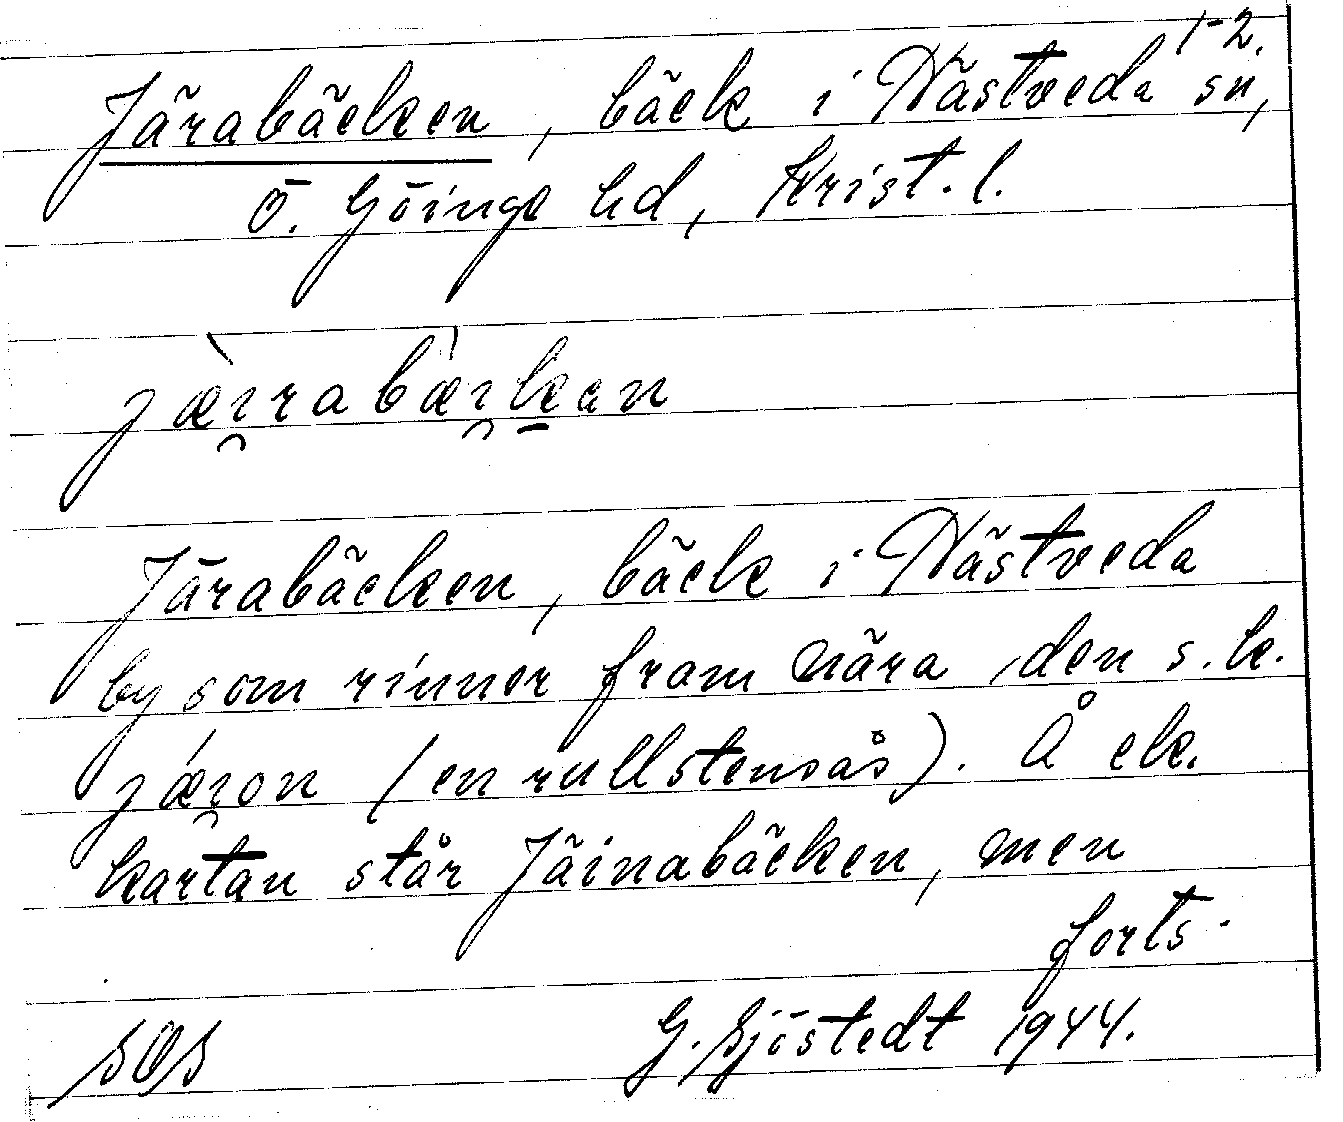 1-2.
Järabäcken, bäck i Hästveda sn,
Ö. Göinge hd, Krist. l.
jæ̀ı̯rabæ̀ı̯ḵan
Järabäcken, bäck i Hästveda
by som rinner fram nära den s. k.
jǽı̯on (en rullstensås). Å ek.
kartan står Jäinabäcken, men
forts.
SOS G. Sjöstedt 1944.